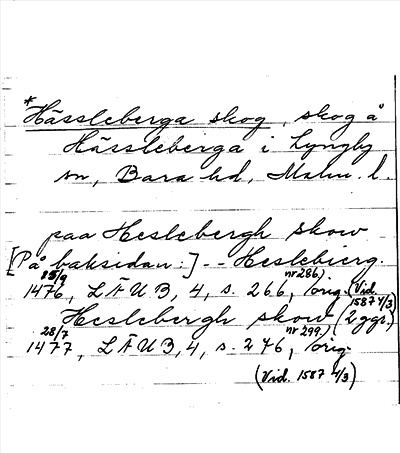 *Hässleberga skog, skog å
Hässleberga i Lyngby
sn, Bara hd, Malm. l.
paa Heslebergh skow
[På baksidan:] -- Heslebierg.
15/9 1476, LÄUB, 4, s. 266, nr 286). orig. (Vid. 1587 4/3)
Heslebergh skow (2 ggr.)
28/7 1477, LÄUB, 4, s. 276, nr 299.) orig.
(Vid. 1587 4/3)